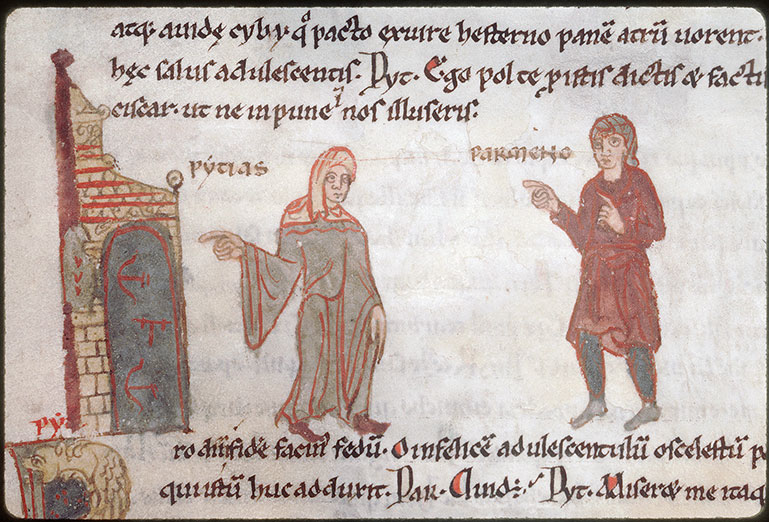 atq; auidę cyby. q̊ pacto exiure hesterno panē atrū uorent.
hęc salus adulescentis. Pyt. Ego pol te ꝓ istis dictis & factis
ciscar. ut ne inpune nos illuseris.
PYTIAS
PARMENO
PY
ro fidē facin fedū. O infelicē adulescentulū o scelestū
qui istū huc adduxit. Par. Quid. Pyt. Miser& me itaq